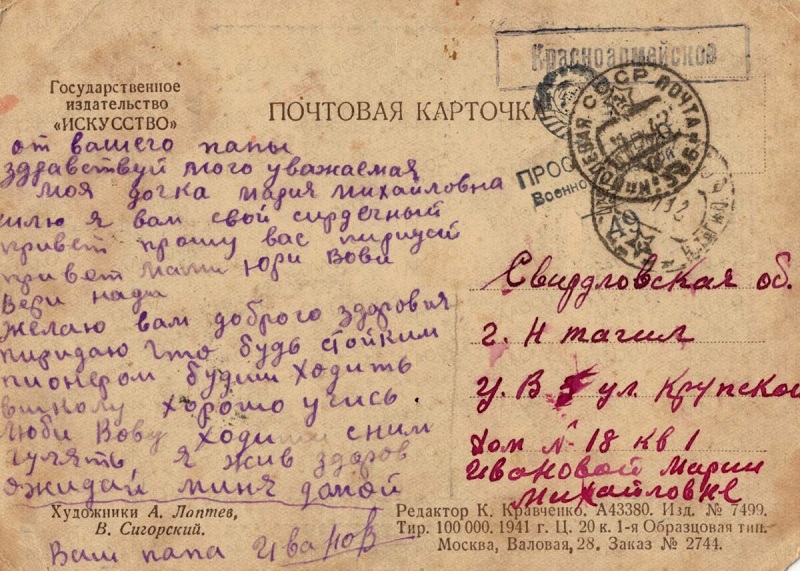 Красноармейское
Государственное
издательство
«ИСКУССТВО»
ПОЧТОВАЯ КАРТОЧКА
от вашего папы
здравствуй мого уважаемая
моя дочка Мария Михайловна
шлю я вам свой сирдечный
привет прошу вас пиридай
привет мами юри Вови
Вери нади
желаю вам доброго здоровия
пиридаю што будь стойким
пионером будиш ходить
вшколу хорошо учись.
люби Вову ходи сним
гулять, я жив здоров
ожидай миня домой
Ваш папа Иванов
СССР ПОЧТА
ПРОС
Военно
Свирдловская об.
г. Н тагил
У. В 5 ул. Крупской
Дом № 18 кв 1
Ивановой Марии
Михайловне
Художники А. Лаптев,
В. Сигорский.
Редактор К. Кравченко. А43380. Изд. № 7499.
Тир. 100 000. 1941 г. Ц. 20 к. 1-я Образцовая тип.
Москва, Валовая, 28. Заказ № 2744.